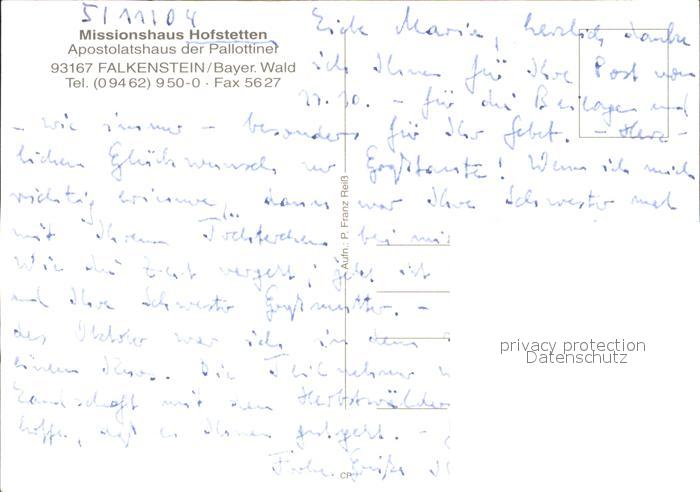 5/11/04
Missionshaus Hofstetten
Apostolatshaus der Pallottiner
93167 FALKENSTEIN/Bayer. Wald
Tel. (09462) 950-0 · Fax 5627
Maria, herzlich danke
ich Ihnen für Ihre Post vom
- für die Beilagen und
- wie immer - besonders für Ihr Gebet. - Herz-
lichen Glückwunsch zur Großtante! Wenn ich mich
richtig erinnere, dann war Ihre Schwester mal
mit Ihrem Töchterchen bei mir
Wie die Zeit vergeht; jetzt ist
und Ihre Schwester Großmutter. -
des Oktober war ich in dem
einem Kurs. Die Teilnehmer
Landschaft mit den Herbstwälder
hoffe, daß es Ihnen gutgeht. -
Frohe Grüße
Aufn.: P. Franz Reiß
CP
privacy protection
Datenschutz